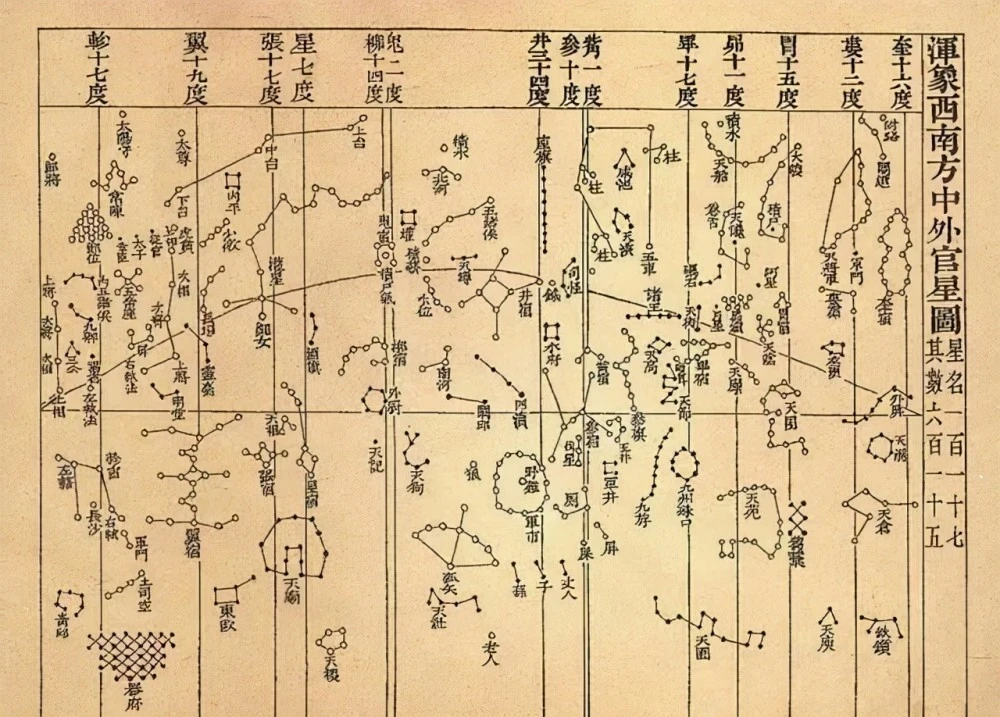 渾象西南方中外官星圖
星名一百一十七
其數六百一十五
奎十六度
婁十二度
胃十五度
昴十一度
畢十七度
觜一度
參十度
井三十四度
鬼二度
柳十四度
星七度
張十七度
翼十九度
軫十七度
附路
閣道
奎宿
軍門
外屏
天溷
天倉
鈇鑕
天庾
婁宿
大陵
積尸
積水
天船
卷舌
天讒
天陰
天囷
芻藁
天苑
天園
礪石
月星
畢宿
天街
諸王
天高
天節
九州殊口
九斿
參旗
柱
柱
柱
五車
咸池
天潢
司怪
座旗
觜宿
參宿
伐星
玉井
軍井
屏
厠
屎
鉞
井宿
水府
野雞
軍市
丈人
子
孫
老人
狼
弧矢
天社
積水
北河
五諸侯
天罇
水位
南河
闕邱
爟
鬼宿
積尸氣
柳宿
外厨
天記
天狗
上台
中台
下台
軒轅
御女
酒旗
天相
張宿
星宿
天廟
天稷
東甌
太尊
内平
少微
虎賁
長垣
靈臺
明堂
上將
次將
次相
上相
翼宿
太陽守
常陳
郎將
郎位
太子
從官
幸臣
五帝座
内五諸侯
九卿
三公
謁者
左執法
右執法
屏
軫宿
左轄
右轄
長沙
軍門
土司空
青邱
器府